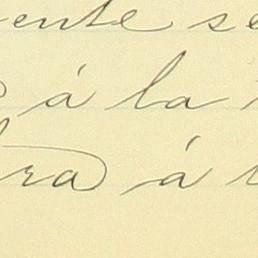 ente se
á la
ra á